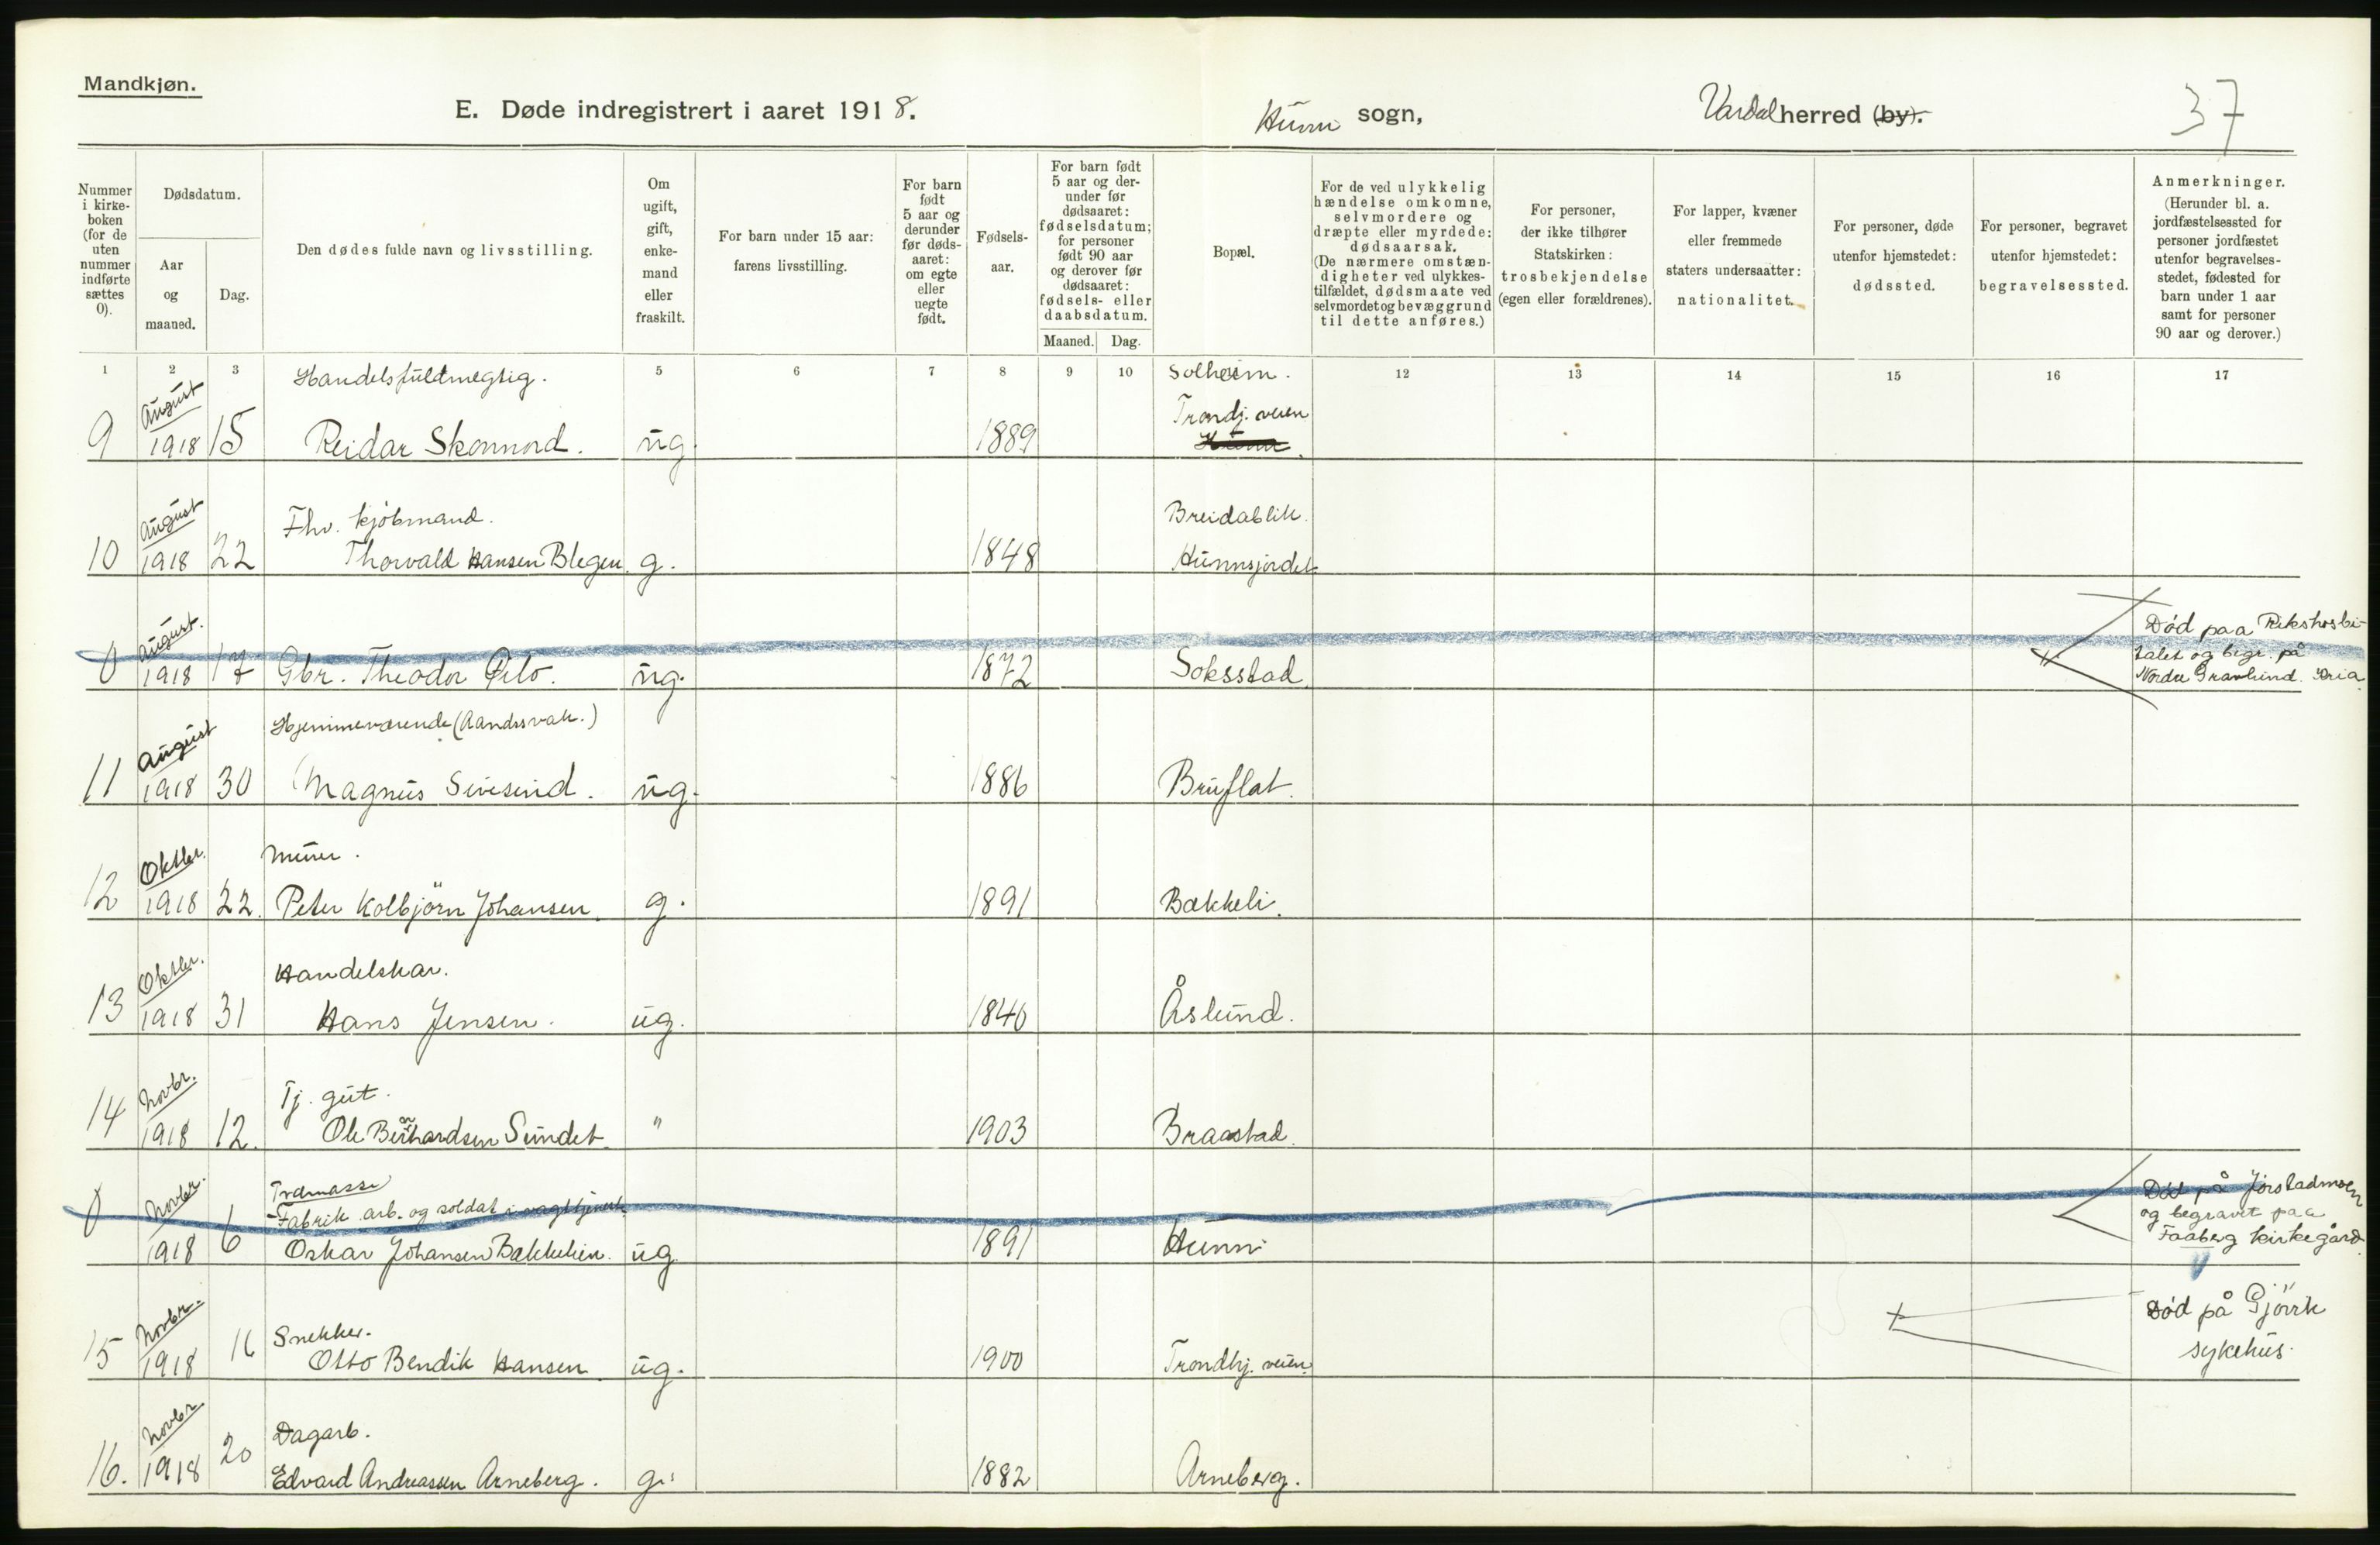 Mandkjøn.
E. Døde indregistrert i aaret 1918.
Hunn sogn,
Vardal herred (by).
37
Nummer i kirke-boken (for de uten nummer indførte sættes 0).
Dødsdatum.
Aar og maaned.
Dag.
Den dødes fulde navn og livsstilling.
Om ugift, gift, enke-mand eller fraskilt.
For barn under 15 aar: farens livsstilling.
For barn født 5 aar og derunder før døds-aaret: om egte eller uegte født.
Fødsels-aar.
For barn født 5 aar og der-under før dødsaaret: fødselsdatum; for personer født 90 aar og derover før dødsaaret: fødsels- eller daabsdatum.
Maaned.
Dag.
Bopæl.
For de ved ulykkelig hændelse omkomne, selvmordere og dræpte eller myrdede: dødsaarsak. (De nærmere omstæn-digheter ved ulykkes-tilfældet, dødsmaate ved selvmordet og bevæggrund til dette anføres.)
For personer, der ikke tilhører Statskirken: trosbekjendelse (egen eller forældrenes).
For lapper, kvæner eller fremmede staters undersaatter: nationalitet.
For personer, døde utenfor hjemstedet: dødssted.
For personer, begravet utenfor hjemstedet: begravelsessted.
Anmerkninger. (Herunder bl. a. jordfæstelsessted for personer jordfæstet utenfor begravelses-stedet, fødested for barn under 1 aar samt for personer 90 aar og derover.)
1 2 3 5 6 7 8 9 10 12 13 14 15 16 17
Handelsfuldmegtig. Solheim.
9 August 1918 15 Reidar Skonnord. ug. 1889 Trondj. veien Hunn.
Fhv. kjøbmand. Breidablik.
10 August 1918 22 Thorvald Hansen Blegen g. 1848 Hunnsjordet
0 August. 1918 17 Gbr. Theodor ug. 1872 Soksstad.
Død paa Rikshosbi-
talet og begr. på
Nordre Gravlund. Kria.
Hjemmeværende (Aandssvak.)
11 August 1918 30 Magnus Sivesind. ug. 1886 Bruflat.
Murer.
12 Oktber. 1918 22. Peter Kolbjörn Johansen. g. 1891 Bækkeli.
Handelskar.
13 Oktber. 1918 31 Hans Jensen. ug. 1840 Åslund.
Tj. gut.
14 Novbr. 1918 12. Ole Bernhardsen Sundet " 1903 Braastad.
Trœmasse
Fabrik arb. og soldat i vagttjenest.
0 Novbr. 1918 6 Oskar Johansen Bækkelien. ug. 1891 Hunn
Död på Jörstadmoen
og begravet paa
Faaberg kirkegård.
Snekker.
15 Novbr. 1918 16 Otto Bendik Hansen. ug. 1900 Trondhj. veien.
Död på Gjövik
sykehus.
Dagarb.
16. Novbr. 1918 20 Edvard Andreassen Arneberg. g. 1882 Arneberg.